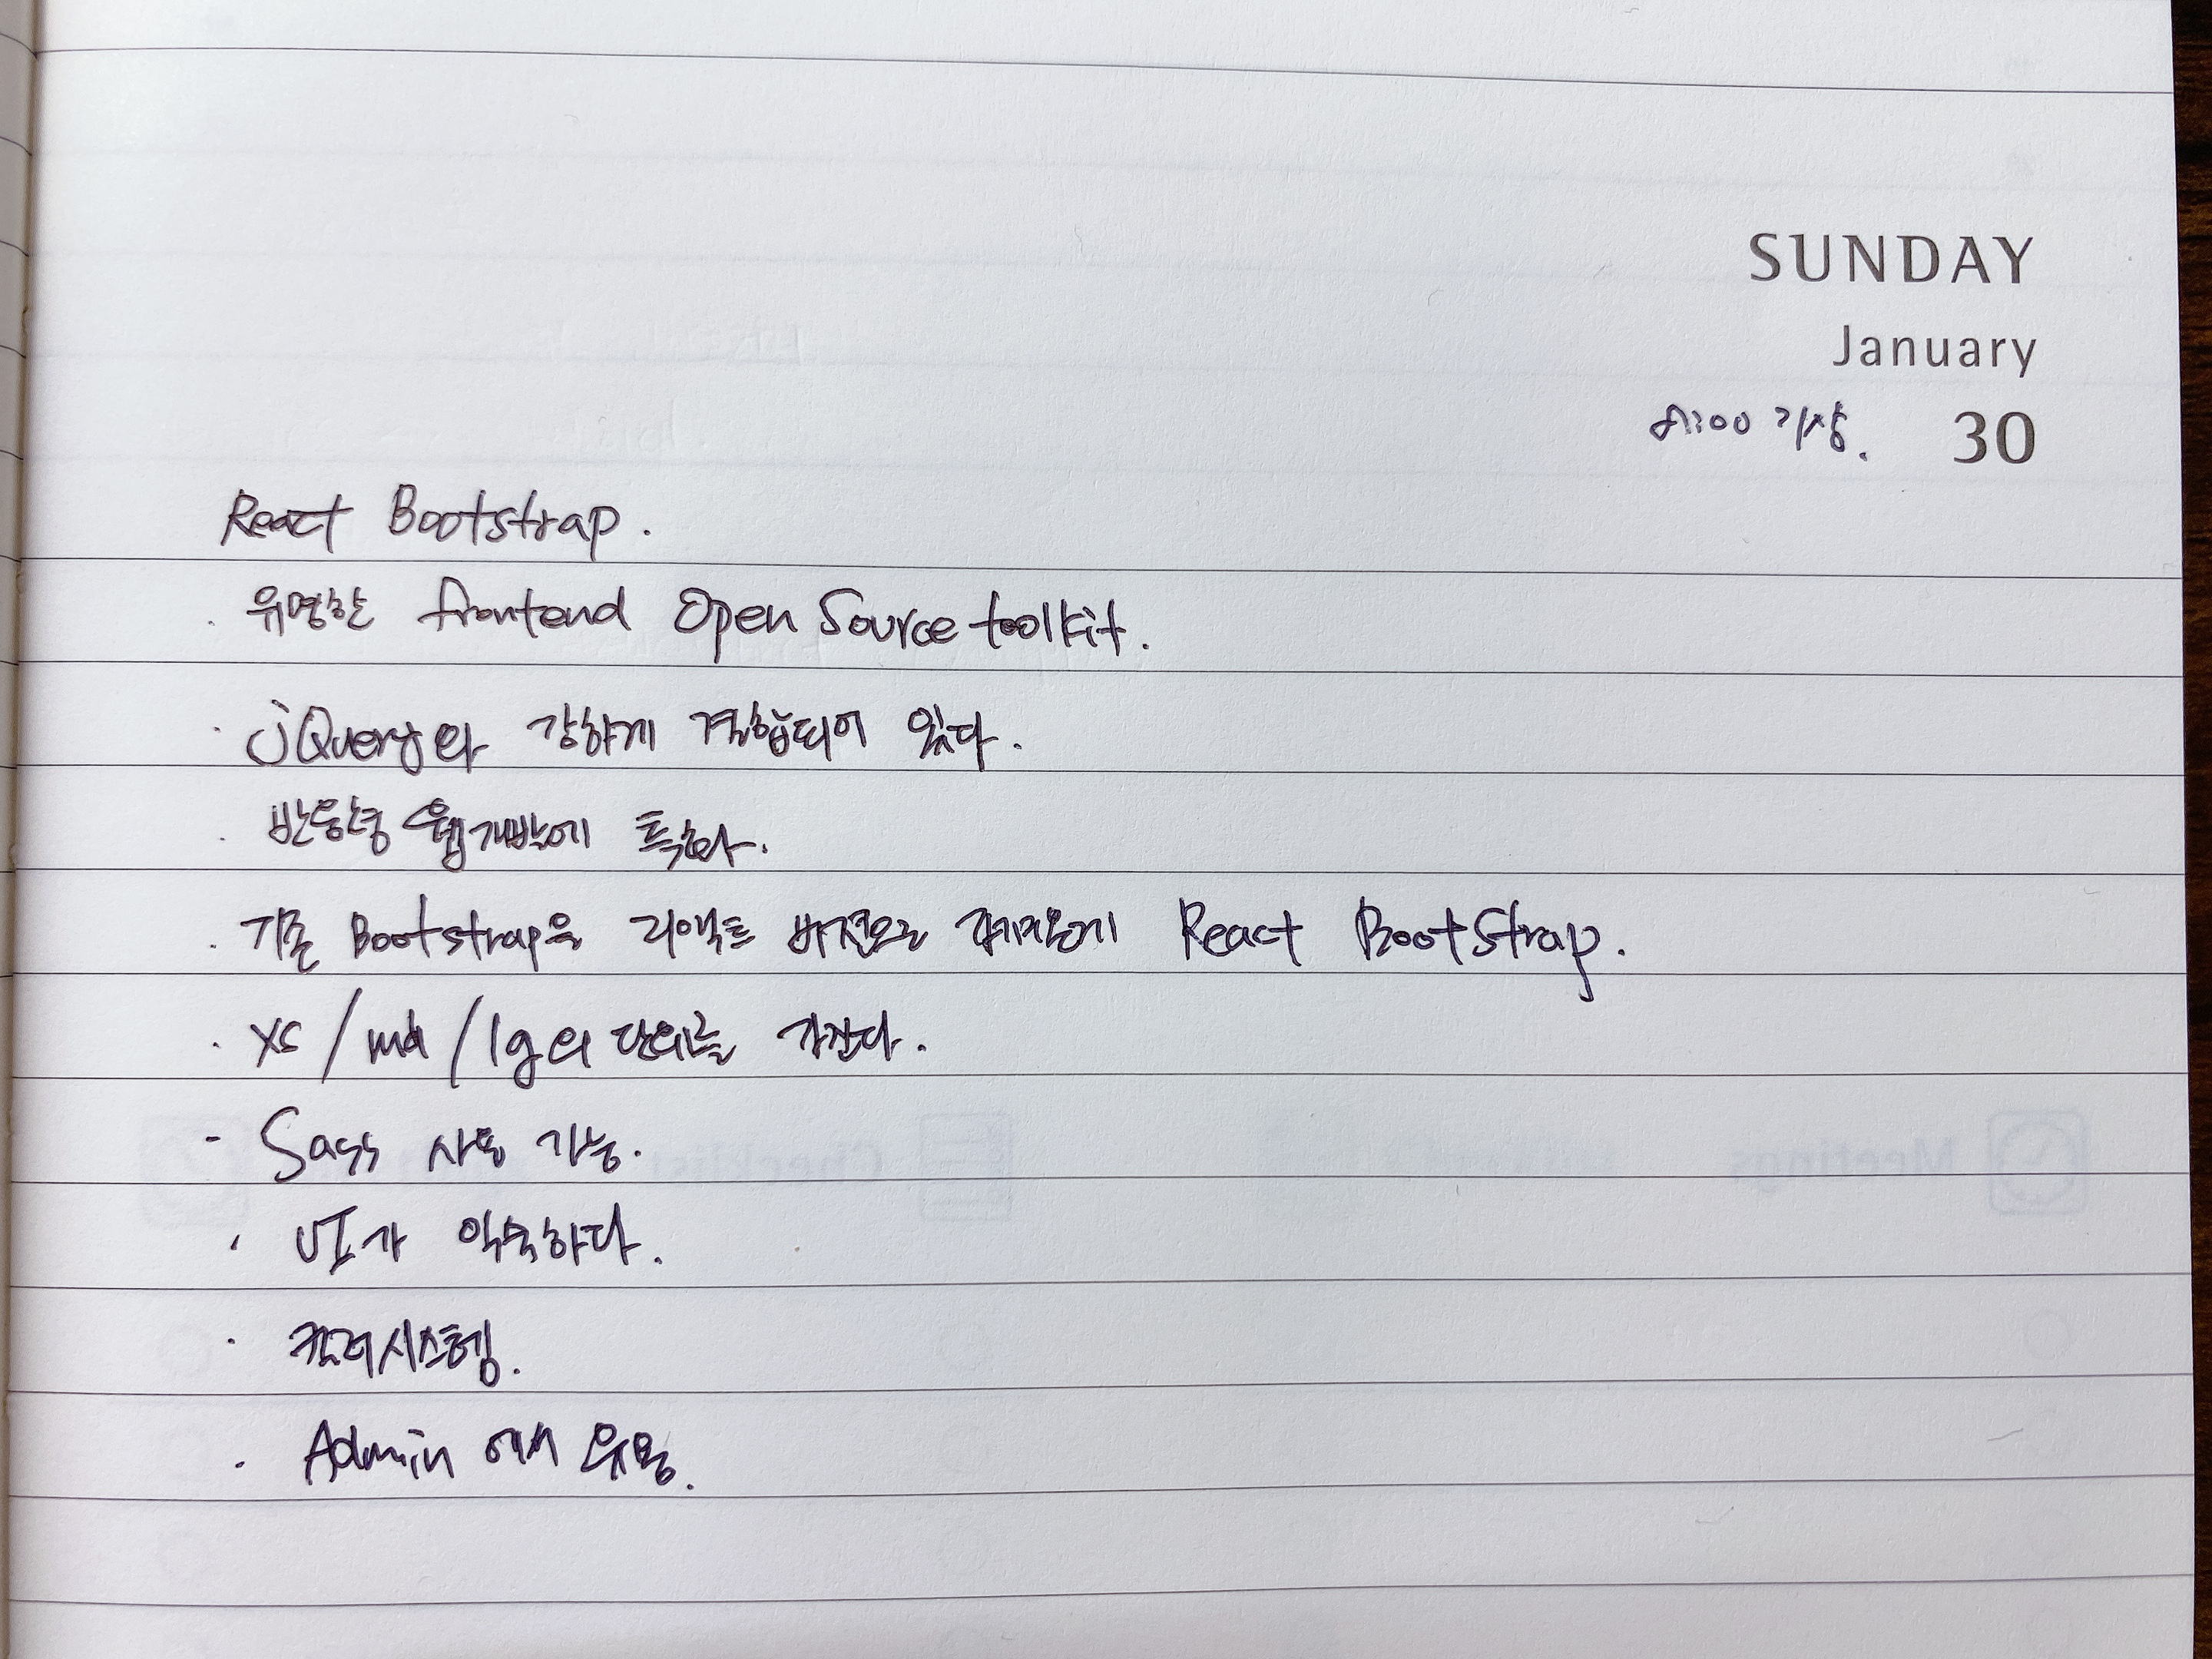 SUNDAY
January
8:00 기상. 30
React Bootstrap.
· 유명한 frontend Open Source toolkit.
· jQuery와 강하게 결합되어 있다.
· 반응형 웹개발에 특화.
· 기존 Bootstrap을 리액트 버전으로 React BootStrap.
· xs / md / lg의 단위를 가진다.
- Sass 사용 가능.
· UI가 익숙하다.
· 컬러시스템.
· Admin 에서 유용.